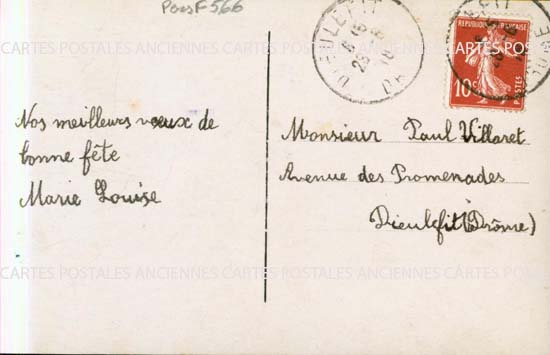 PoesF566
DIEULEFIT
DR
REPUBLIQUE FRANÇAISE
10c
POSTES
Nos meilleurs vœux de
bonne fête
Marie Louise
Monsieur Paul Villaret
Avenue des Promenades
Dieulefit (Drôme)
CARTES POSTALES ANCIENNES CARTES POSTALES ANCIENNES
CARTES POSTALES ANCIENNES CARTES POSTALES ANCIENNES